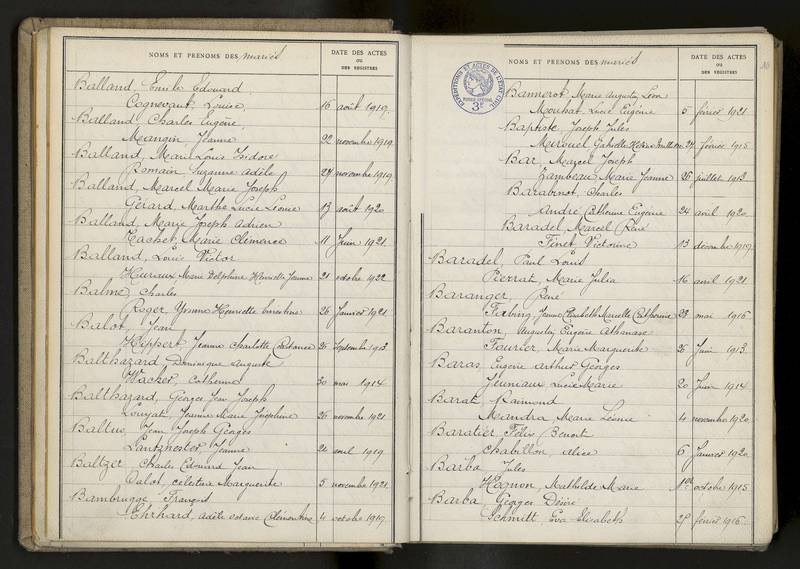 NOMS ET PRÉNOMS DES mariés
DATE DES ACTES
OU
DES REGISTRES
Balland, Emile Edouard
Cognevaut, Louise 16 août 1919.
Balland Charles Eugène,
Mangin, Jeanne 22 novembre 1919.
Balland, Marie Louis Isidore
Romain, Suzanne adèle 24 novembre 1919.
Balland, Marcel Marie Joseph
Gérard, Marthe Lucie Léonie 13 août 1920
Balland, Marie Joseph Adrien
Hachet, Marie Clémence 11 Juin 1921.
Balland, Louis Victor
Huraux, Marie Delphine Henriette Jeanne 21 octobre 1922
Balme, Charles
Roger Yvonne Henriette Ernestine 26 Janvier 1921.
Balot, Jean
Hippert, Jeanne Charlotte Constance 25 Septembre 1913.
Balthazard Dominique Auguste
Wacker, Catherine 30 mai 1914
Balthazard, Georges Jean Joseph
Louyat, Jeanne Marie Joséphine 26 novembre 1921.
Baltus, Jean Joseph Georges
Lantznester, Jeanne 21 avril 1919
Baltzer, Charles Edouard Jean
Valot, Célestine Marguerite 5 novembre 1921.
Bambrugge François
Ehrhard, adèle octavie Clémentine 4 octobre 1919.
NOMS ET PRÉNOMS DES mariés
DATE DES ACTES
OU
DES REGISTRES
EXPÉDITIONS ET ACTES DE L'ÉTAT CIVIL
3F
Bannerot, Marie Augustin Léon
Mouhat, Lucie Eugénie 5 février 1921
Baptiste Joseph Jules
Marouel Gabrielle Hélène 24 février 1915
Bar, Marcel Joseph
Zambeau, Marie Jeanne 26 juillet 1913.
Barabinot, Charles
André Catherine Eugénie 24 avril 1920.
Baradel Marcel René
Finet Victorine 13 décembre 1919.
Baradel, Paul Louis
Pierrat, Marie Julia 16 avril 1921.
Baranger, René
Fabing, Jeanne Elisabeth Marcelle Catherine 23 mai 1916
Baranton, Augustin, Eugène Athanase
Fourier, Marie Marguerite 26 Juin 1913.
Baras Eugène Arthur Georges
Jeuniaux Lucie Marie 20 Juin 1914
Barat Raimond
Meandra Marie Léonie 4 novembre 1920
Baratier, Félix Benoit
Chabillon, Alice 6 Janvier 1920
Barba Jules
Hognon, Mathilde Marie 1er octobre 1915
Barba Georges Désiré
Schmitt Eva Elisabeth 29 février 1916